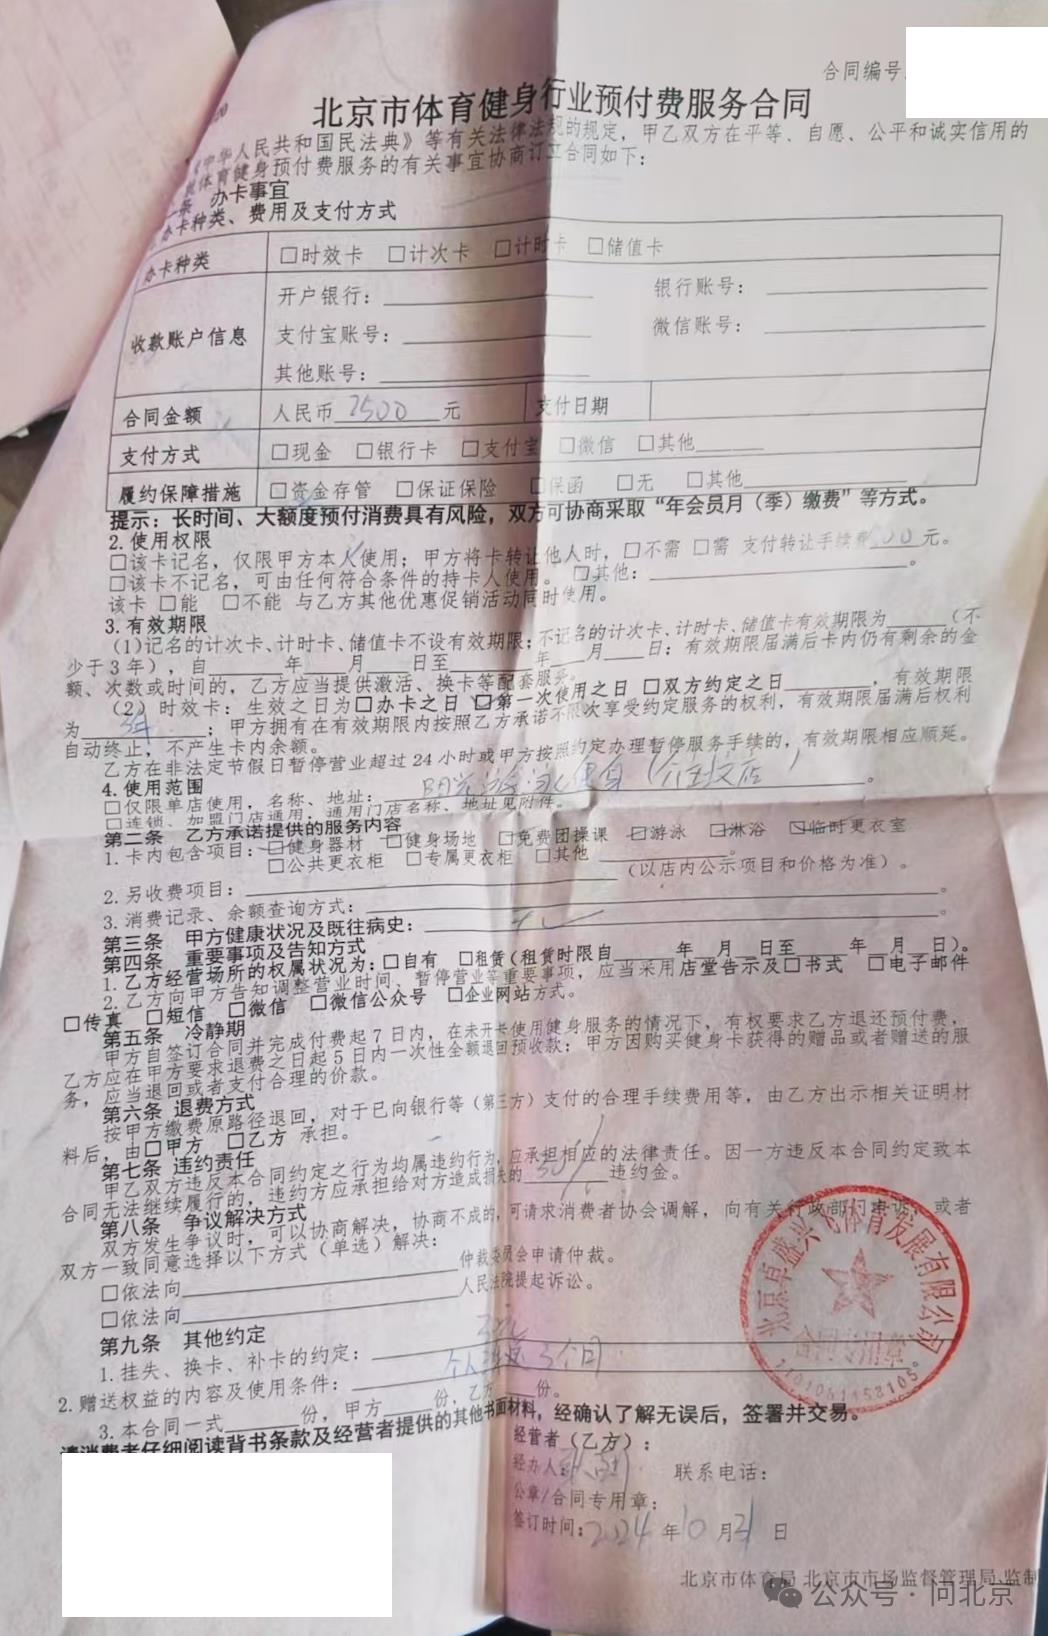 合同编号:
北京市体育健身行业预付费服务合同
《中华人民共和国民法典》等有关法律法规的规定，甲乙双方在平等、自愿、公平和诚实信用的
体育健身预付费服务的有关事宜协商订立合同如下：
条 办卡事宜
办卡种类、费用及支付方式
办卡种类 □时效卡 □计次卡 □计时卡 □储值卡
收款账户信息 开户银行： 银行账号：
支付宝账号： 微信账号：
其他账号：
合同金额 人民币 2500 元 支付日期
支付方式 □现金 □银行卡 □支付宝 □微信 □其他
履约保障措施 □资金存管 □保证保险 □保函 □无 □其他
提示：长时间、大额度预付消费具有风险，双方可协商采取“年会员月（季）缴费”等方式。
2.使用权限
□该卡记名，仅限甲方本人使用；甲方将卡转让他人时，□不需 □需 支付转让手续费 元。
□该卡不记名，可由任何符合条件的持卡人使用。 □其他： 。
该卡 □能 □不能 与乙方其他优惠促销活动同时使用。
3.有效期限
(1)记名的计次卡、计时卡、储值卡不设有效期限；不记名的计次卡、计时卡、储值卡有效期限为 （不
少于3年），自 年 月 日至 年 月 日；有效期限届满后卡内仍有剩余的金
额、次数或时间的，乙方应当提供激活、换卡等配套服务。
（2）时效卡：生效之日为□办卡之日 □第一次使用之日 □双方约定之日 ，有效期限
为 3年 ；甲方拥有在有效期限内按照乙方承诺不限次享受约定服务的权利，有效期限届满后权利
自动终止，不产生卡内余额。
乙方在非法定节假日暂停营业超过24小时或甲方按照约定办理暂停服务手续的，有效期限相应顺延。
4.使用范围
□仅限单店使用，名称、地址： 游泳健身 。
□连锁、加盟门店通用，通用门店名称、地址见附件。
第二条 乙方承诺提供的服务内容
1.卡内包含项目：□健身器材 □健身场地 □免费团操课 ☑游泳 ☑淋浴 ☑临时更衣室
□公共更衣柜 □专属更衣柜 □其他 。
（以店内公示项目和价格为准）。
2.另收费项目： 。
3.消费记录、余额查询方式： 。
第三条 甲方健康状况及既往病史：
第四条 重要事项及告知方式
1.乙方经营场所的权属状况为：□自有 □租赁（租赁时限自 年 月 日至 年 月 日）。
2.乙方向甲方告知调整营业时间、暂停营业等重要事项，应当采用店堂告示及□书式 □电子邮件
□传真 □短信 □微信 □微信公众号 □企业网站方式。
第五条 冷静期
甲方自签订合同并完成付费起7日内，在未开卡使用健身服务的情况下，有权要求乙方退还预付费，
乙方应在甲方要求退费之日起5日内一次性全额退回预收款；甲方因购买健身卡获得的赠品或者赠送的服
务，应当退回或者支付合理的价款。
第六条 退费方式
按甲方缴费原路径退回，对于已向银行等（第三方）支付的合理手续费用等，由乙方出示相关证明材
料后，由□甲方 □乙方 承担。
第七条 违约责任
甲乙双方违反本合同约定之行为均属违约行为，应承担相应的法律责任。因一方违反本合同约定致本
合同无法继续履行的，违约方应承担给对方造成损失的 30% 违约金。
第八条 争议解决方式
双方发生争议时，可以协商解决，协商不成的，可请求消费者协会调解，向有关行政部门申诉，或者
双方一致同意选择以下方式（单选）解决：
□依法向 仲裁委员会申请仲裁。
□依法向 人民法院提起诉讼。
第九条 其他约定
1.挂失、换卡、补卡的约定： 。
2.赠送权益的内容及使用条件： 3个月 。
3.本合同一式 份，甲方 份，乙方 份。
请消费者仔细阅读背书条款及经营者提供的其他书面材料，经确认了解无误后，签署并交易。
经营者（乙方）：
经办人： 联系电话：
公章/合同专用章：
签订时间：2024 年 10 月 31 日
北京卓盛兴飞体育发展有限公司
合同专用章
北京市体育局 北京市市场监督管理局 监制
公众号·问北京